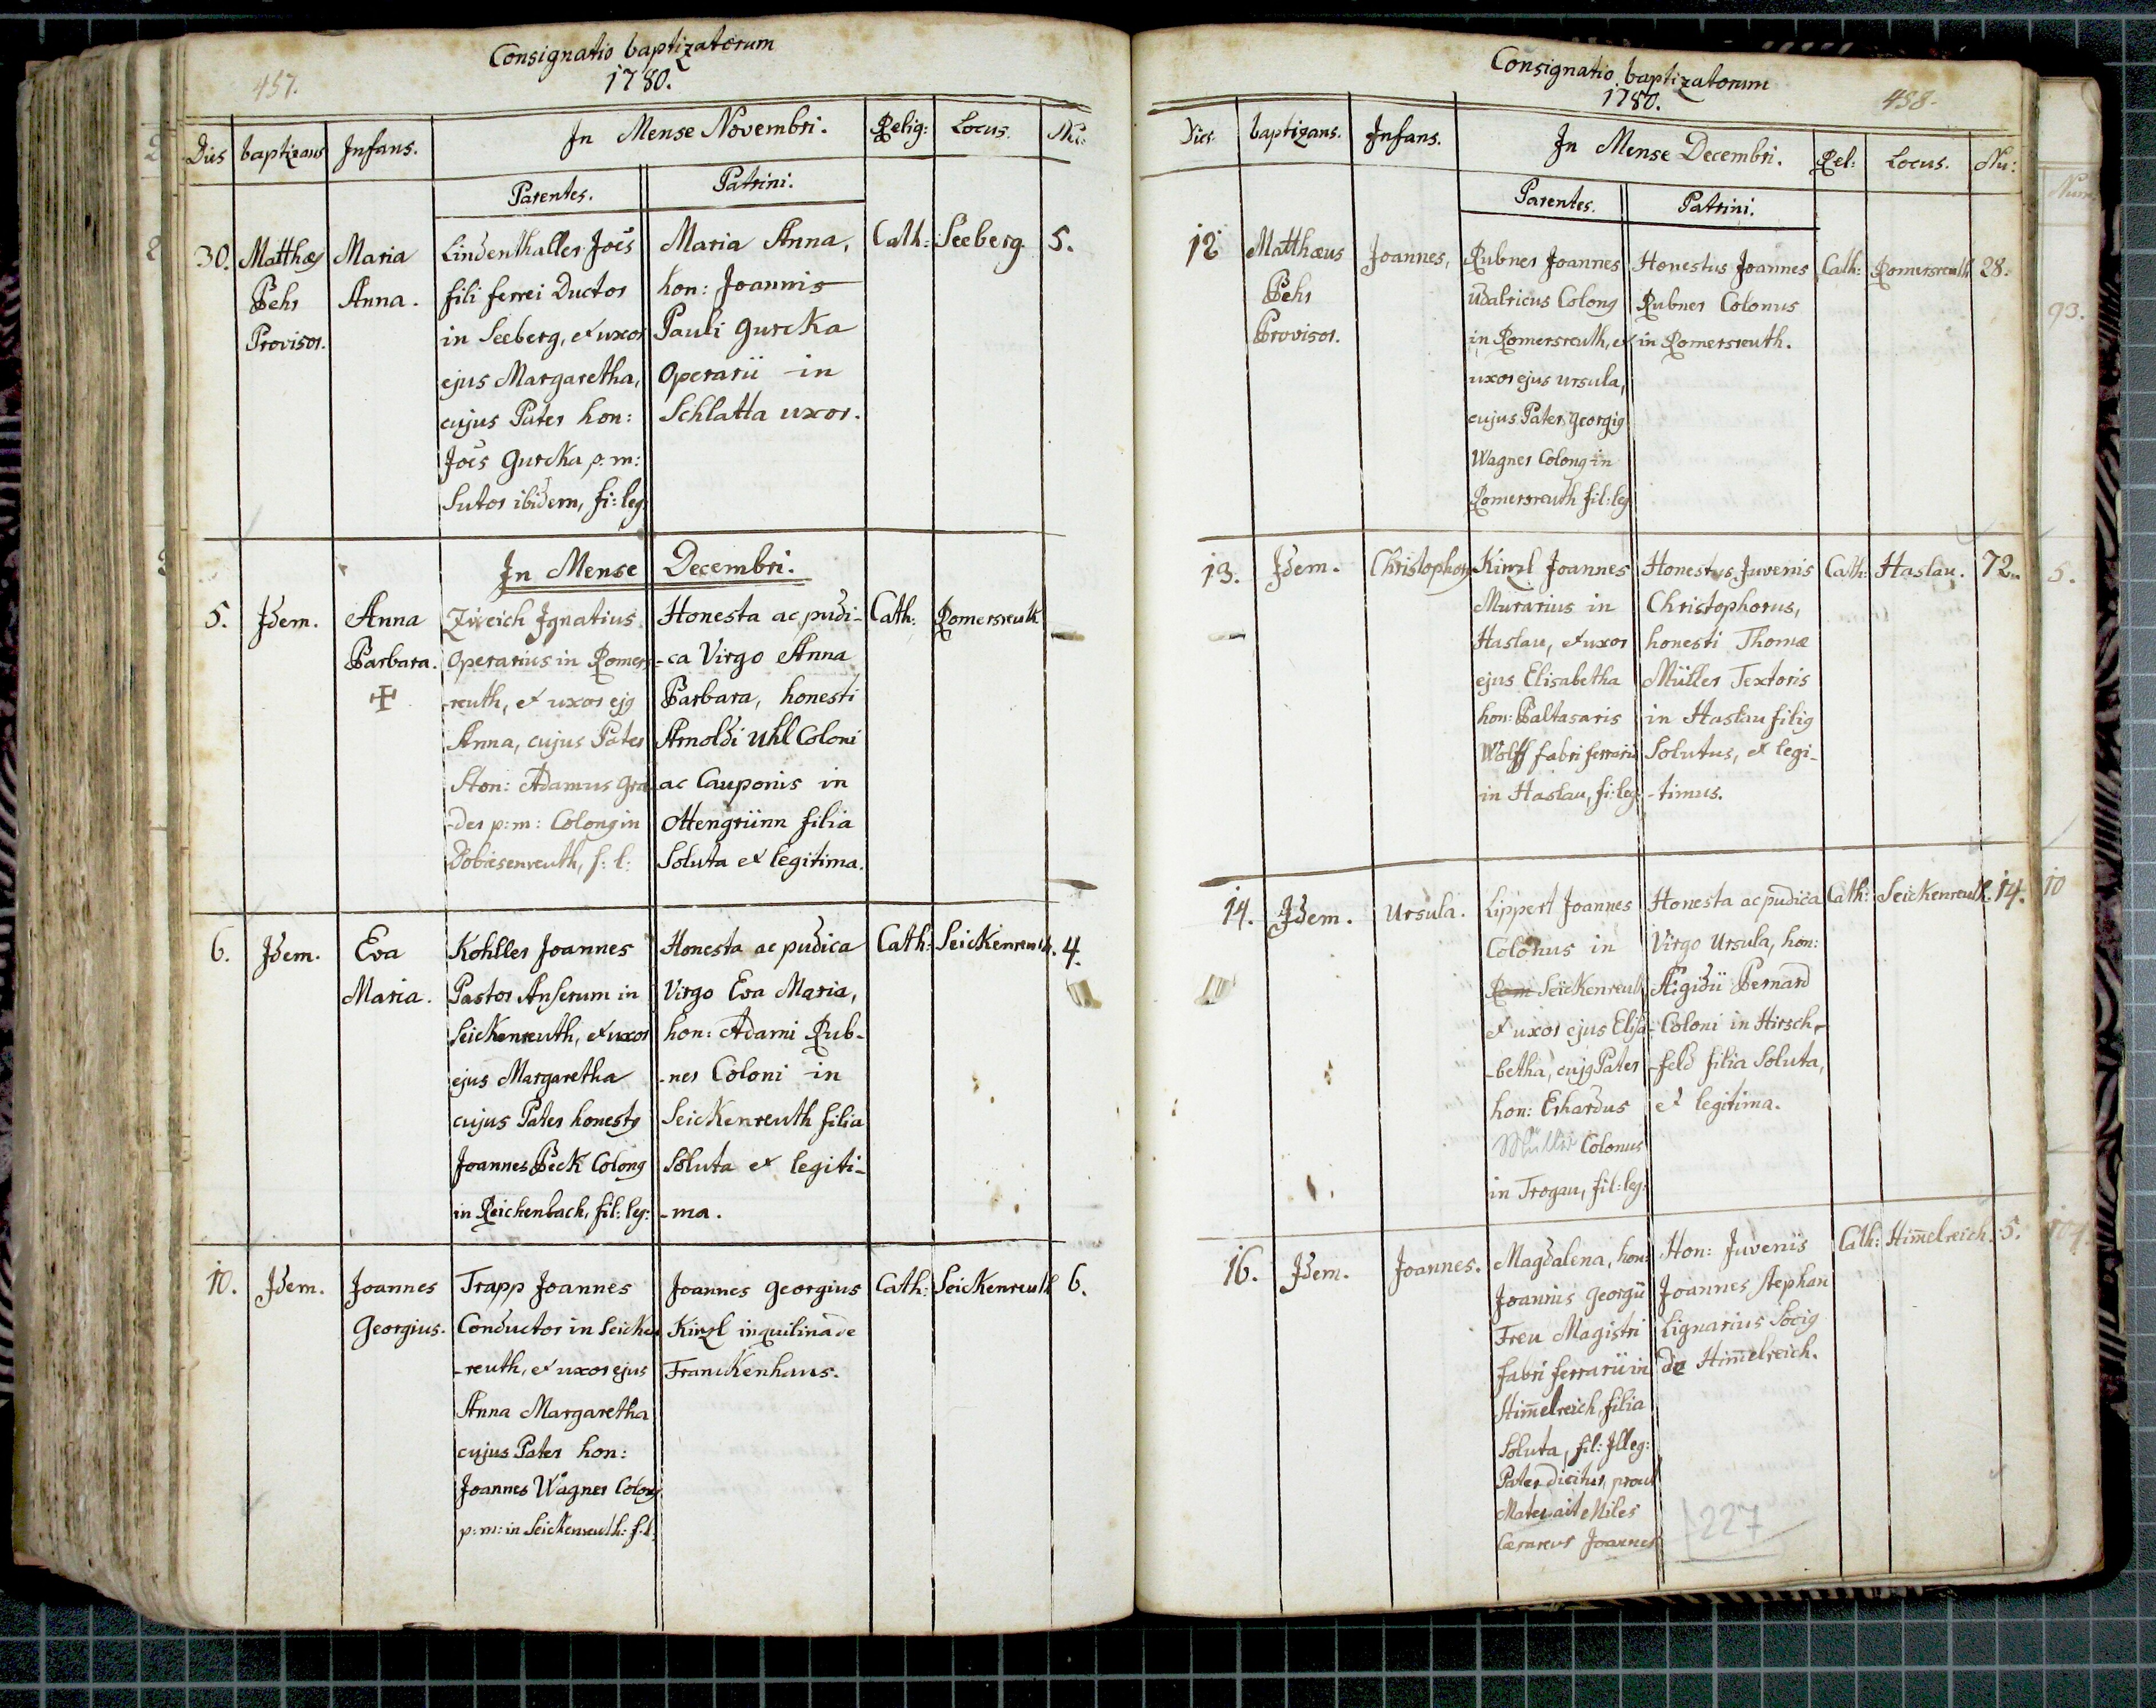 457.
Consignatio baptizatorum
1780.
Dies baptizans Infans. In Mense Novembri. Relig: Locus. Nu:
Parentes. Patrini.
30. Matthæus
Pehr
Provisor.
Maria
Anna.
Lindenthaller Joes
fili ferrei Ductor
in Seeberg, et uxor
ejus Margaretha,
cujus Pater hon:
Joes Gurcka p: m:
Sutor ibidem, fi: leg:
Maria Anna,
hon: Joannis
Pauli Gurcka
Operarii in
Schlatta uxor.
Cath: Seeberg. 5.
In Mense Decembri.
5. Idem. Anna
Barbara.
Zweich Ignatius
Operarius in Romers-
-reuth, et uxor ejus
Anna, cujus Pater
Hon: Adamus Gra-
-der p: m: Colonus in
f: l:
Honesta ac pudi-
-ca Virgo Anna
Barbara, honesti
Arnoldi Uhl Coloni
ac Cauponis in
Ottengrünn filia
Soluta et legitima.
Cath: Romersreuth
6. Idem. Eva
Maria.
Kohller Joannes
Pastor Anserum in
Seickenreuth, et uxor
ejus Margaretha
cujus Pater honestus
Joannes Beck Colonus
in Reichenbach, fil: leg:
Honesta ac pudica
Virgo Eva Maria,
hon: Adami Rub-
-ner Coloni in
Seickenreuth filia
Soluta et legiti-
-ma.
Cath: Seickenreuth. 4.
10. Idem. Joannes
Georgius.
Trapp Joannes
Conductor in Seicken
-reuth, et uxor ejus
Anna Margaretha
cujus Pater hon:
Joannes Wagner Colonus
p: m: in Seickenreuth: f: l:
Joannes Georgius
Kinzl inquilinæ de
Franckenhaus.
Cath: Seickenreuth 6.
Consignatio baptizatorum
1780.
458.
Dies. baptizans. Infans. In Mense Decembri. Rel: Locus. Nu:
Parentes. Patrini.
12 Matthæus
Pehr
Provisor.
Joannes,
Rubner Joannes
Udalricus Colonus
in Romersreuth, et
uxor ejus Ursula,
cujus Pater Georgius
Wagner Colonus in
Romersreuth fil: leg:
Honestus Joannes
Rubner Colonus
in Romersreuth.
Cath: Romersreuth 28.
13. Idem. Christophorus
Kinzl Joannes
Murarius in
Haslau, et uxor
ejus Elisabetha
hon: Baltasaris
Wolff fabri ferrarii
in Haslau, fi: leg:
Honestus Juvenis
Christophorus,
honesti Thomæ
Müller Textoris
in Haslau filius
Solutus, et legi-
-timus.
Cath: Haslau. 72.
14. Idem. Ursula.
Lippert Joannes
Colonus in
Rom Seickenreuth
et uxor ejus Elisa-
-betha, cujus Pater
hon: Erhardus
Müller Colonus
in Trogau, fil: leg:
Honesta ac pudica
Virgo Ursula, hon:
Ægidii Bernard
Coloni in Hirsch-
-feld filia Soluta,
et legitima.
Cath: Seickenreuth. 14.
16. Idem. Joannes.
Magdalena, hon:
Joannis Georgii
Freu Magistri
fabri ferrarii in
Him̄elreich, filia
Soluta, fil: Illeg:
Pater dicitur, prout
Mater ait Miles
Cæsareus Joannes
Hon: Juvenis
Joannes Stephan
Lignarius Socius
de Him̄elreich.
Cath: Him̄elreich. 5.
227
93.
5.
10